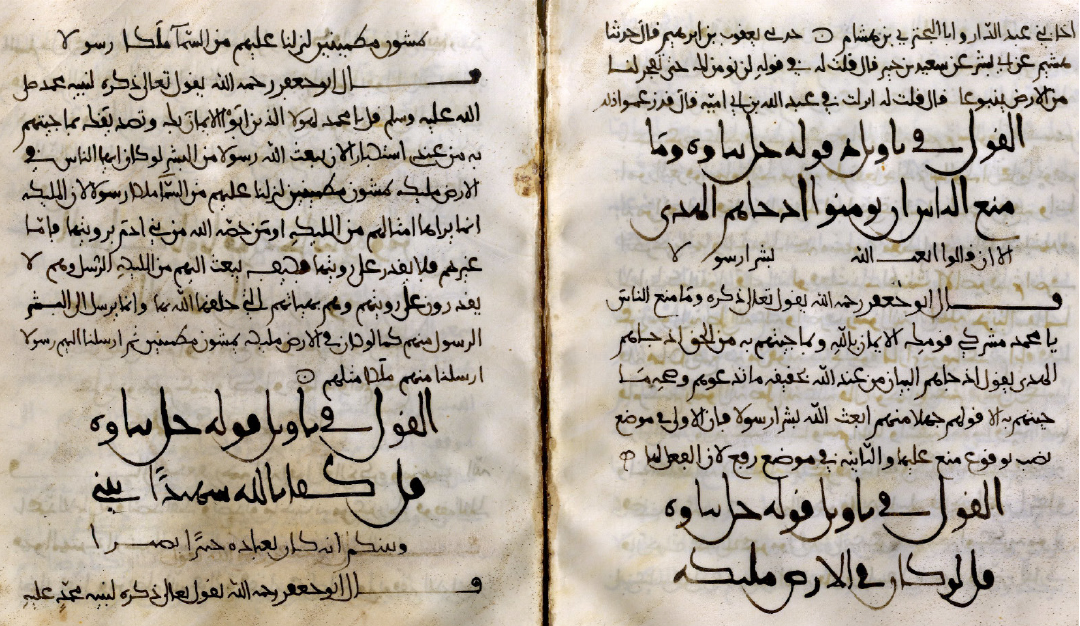 اخا بني عبد الدار وابا البختري بن هشام حدثني يعقوب بن ابرهيم قال حدثنا
هشيم عن ابي بشر عن سعيد بن جبير قال قلت له في قوله لن نومن لك حتى تفجر لنا
من الارض ينبوعا قال قلت له نزلت في عبد الله بن ابي اميه قال قد زعموا ذلك
القول في تاويل قوله جل ثناوه وما
منع الناس ان يومنوا اذ جاهم الهدى
الا ان قالوا ابعث الله بشرا رسولا
قال ابو جعفر رحمه الله يقول تعالى ذكره وما منع الناس
يا محمد مشركي قومك الايمان بالله وبما جيتهم به من الحق اذ جاهم
الهدى يقول اذ جاهم البيان من عند الله بحقيقه ما تدعوهم وصحه ما
جيتهم به الا قولهم جهلا منهم ابعث الله بشرا رسولا فان الاولى في موضع
نصب بوقوع منع عليها والثانيه في موضع رفع لان الفعل لها
القول في تاويل قوله جل ثناوه
قل لو كان في الارض مليكه
يمشون مطمينين لنزلنا عليهم من السمآ ملكا رسولا
قال ابو جعفر رحمه الله يقول تعالى ذكره لنبيه محمد صلى
الله عليه وسلم قل يا محمد لهولا الذين ابوا الايمان بك وتصديقك بما جيتهم
به من عندي استنكارا لان يبعث الله رسولا من البشر لو كان ايها الناس في
الارض مليكه يمشون مطمينين لنزلنا عليهم من السمآ ملكا رسولا لان المليكه
انما يراها امثالهم من المليكه ومن خصه الله من بني ادم برويتها فاما
غيرهم فلا يقدر على رويتها فكيف يبعث اليهم من المليكه الرسل وهم لا
يقدرون على رويتهم وهم بهياتهم التي خلقهم الله بها وانما يرسل الى البشر
الرسول منهم كما لو كان في الارض مليكه يمشون مطمينين ثم ارسلنا اليهم رسولا
ارسلنا منهم ملكا مثلهم
القول في تاويل قوله جل ثناوه
قل كفا بالله شهيدًا بيني
وبينكم انه كان بعباده خبيرًا بصيرا
قال ابو جعفر رحمه الله يقول تعالى ذكره لنبيه محمد عليه